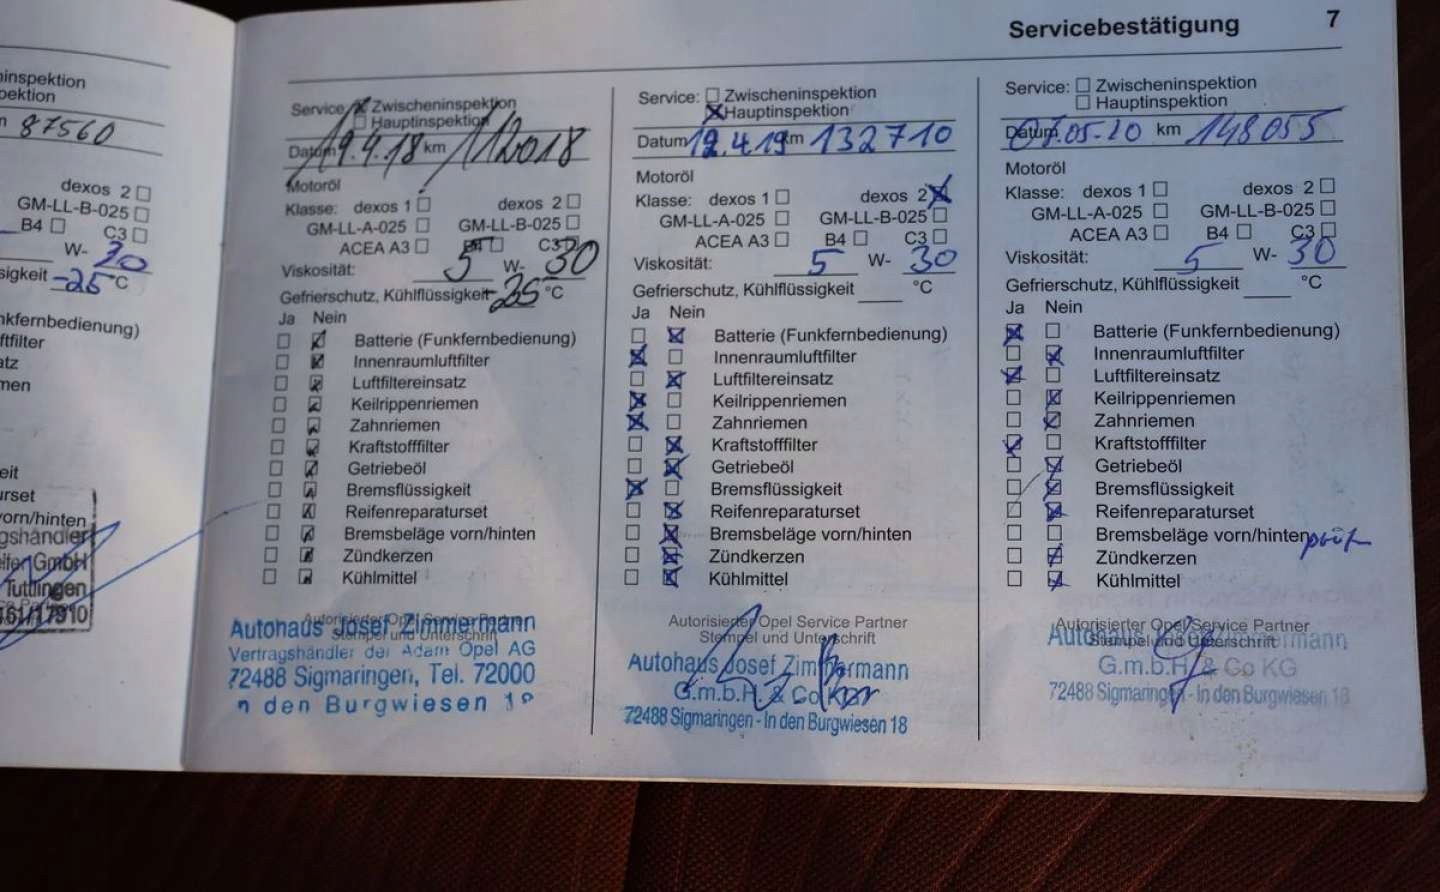 Servicebestätigung 7
ninspektion
pektion
n 87560
dexos 2
GM-LL-B-025
B4 C3
W- 30
sigkeit -25 °C
nkfernbedienung)
ftfilter
atz
men
eit
urset
vorn/hinten
gshändler
eifen GmbH
Tuttlingen
Service: Zwischeninspektion
Hauptinspektion
Datum 19.4.18 km 112018
Motoröl
Klasse: dexos 1 dexos 2
GM-LL-A-025 GM-LL-B-025
ACEA A3 B4 C3
Viskosität: 5 W- 30
Gefrierschutz, Kühlflüssigkeit -25 °C
Ja Nein
Batterie (Funkfernbedienung)
Innenraumluftfilter
Luftfiltereinsatz
Keilrippenriemen
Zahnriemen
Kraftstofffilter
Getriebeöl
Bremsflüssigkeit
Reifenreparaturset
Bremsbeläge vorn/hinten
Zündkerzen
Kühlmittel
Autorisierter Opel Service Partner
Stempel und Unterschrift
Autohaus Josef Zimmermann
Vertragshändler der Adam Opel AG
72488 Sigmaringen, Tel. 72000
n den Burgwiesen 18
Service: Zwischeninspektion
Hauptinspektion
Datum 12.4.19 km 132710
Motoröl
Klasse: dexos 1 dexos 2
GM-LL-A-025 GM-LL-B-025
ACEA A3 B4 C3
Viskosität: 5 W- 30
Gefrierschutz, Kühlflüssigkeit °C
Ja Nein
Batterie (Funkfernbedienung)
Innenraumluftfilter
Luftfiltereinsatz
Keilrippenriemen
Zahnriemen
Kraftstofffilter
Getriebeöl
Bremsflüssigkeit
Reifenreparaturset
Bremsbeläge vorn/hinten
Zündkerzen
Kühlmittel
Autorisierter Opel Service Partner
Stempel und Unterschrift
Autohaus Josef Zimmermann
G.m.b.H. & Co
72488 Sigmaringen - In den Burgwiesen 18
Service: Zwischeninspektion
Hauptinspektion
Datum 05-20 km 148055
Motoröl
Klasse: dexos 1 dexos 2
GM-LL-A-025 GM-LL-B-025
ACEA A3 B4 C3
Viskosität: 5 W- 30
Gefrierschutz, Kühlflüssigkeit °C
Ja Nein
Batterie (Funkfernbedienung)
Innenraumluftfilter
Luftfiltereinsatz
Keilrippenriemen
Zahnriemen
Kraftstofffilter
Getriebeöl
Bremsflüssigkeit
Reifenreparaturset
Bremsbeläge vorn/hinten
Zündkerzen
Kühlmittel
Autorisierter Opel Service Partner
Stempel und Unterschrift
Autohaus Josef Zimmermann
G.m.b.H. & Co KG
72488 Sigmaringen - In den Burgwiesen 18